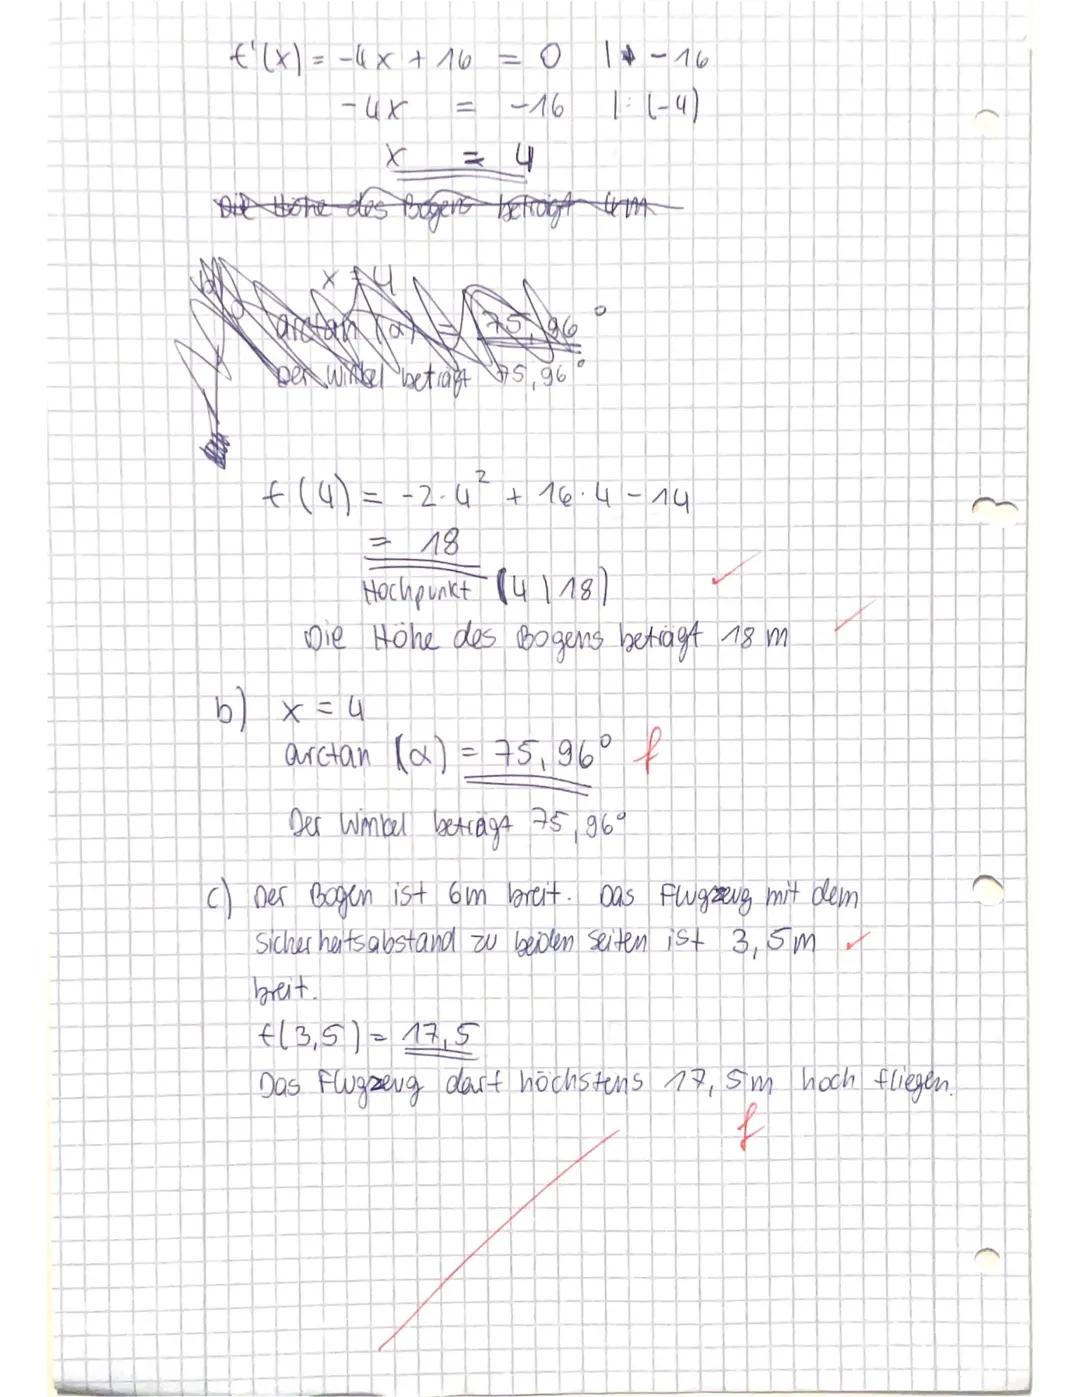 f'(x) = -4x + 16 = 0 | -16
-4x = -16 | : (-4)
x = 4
Die Höhe des Bogens beträgt 4m
x = 4
arctan (α) = 75,96°
Der Winkel beträgt 75,96°
f(4) = -2·4² + 16·4 - 14
= 18
Hochpunkt (4 | 18)
Die Höhe des Bogens beträgt 18 m
b) x = 4
arctan (α) = 75,96° f
Der Winkel beträgt 75,96°
c) Der Bogen ist 6m breit. Das Flugzeug mit dem
Sicherheitsabstand zu beiden Seiten ist 3,5m
breit.
f(3,5) = 17,5
Das Flugzeug darf höchstens 17,5m hoch fliegen.
f